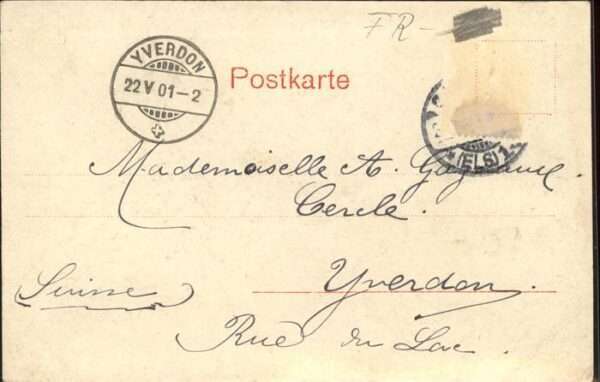 FR-
YVERDON
22 V 01-2
Postkarte
(ELS)1
Mademoiselle A.
Cercle.
Yverdon.
Suisse
Rue du Lac.